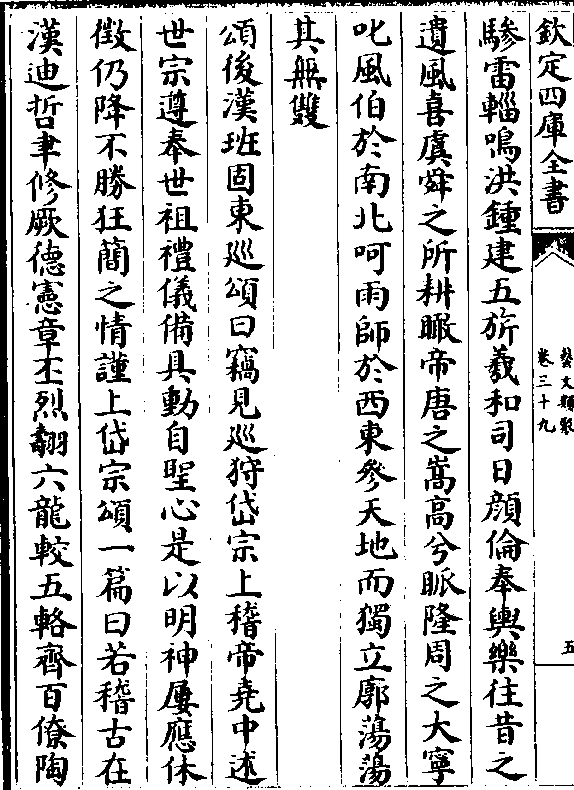 欽定四庫全書
藝文類聚
卷三十九
五
驂雷輜鳴洪鍾建五旂羲和司日顔倫奉輿樂往昔之
遺風喜虞舜之所耕瞰帝唐之嵩高兮眽隆周之大寧
叱風伯於南北呵雨師於西東參天地而獨立廓蕩蕩
其無雙
頌後漢班固東巡頌曰竊見巡狩岱宗上稽帝堯中述
世宗遵奉世祖禮儀備具動自聖心是以明神屢應休
徵仍降不勝狂簡之情謹上岱宗頌一篇曰若稽古在
漢迪哲聿修厥德憲章丕烈翿六龍較五輅齊百僚陶